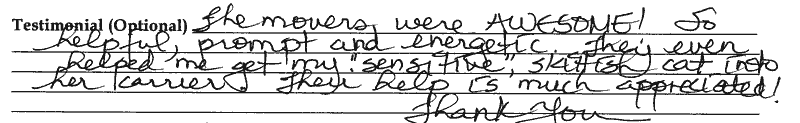 Testimonial (Optional) The movers were AWESOME! So
helpful, prompt and energetic. They even
helped me get my "sensitive", skittish cat into
her carrier. Their help is much appreciated!
Thank You